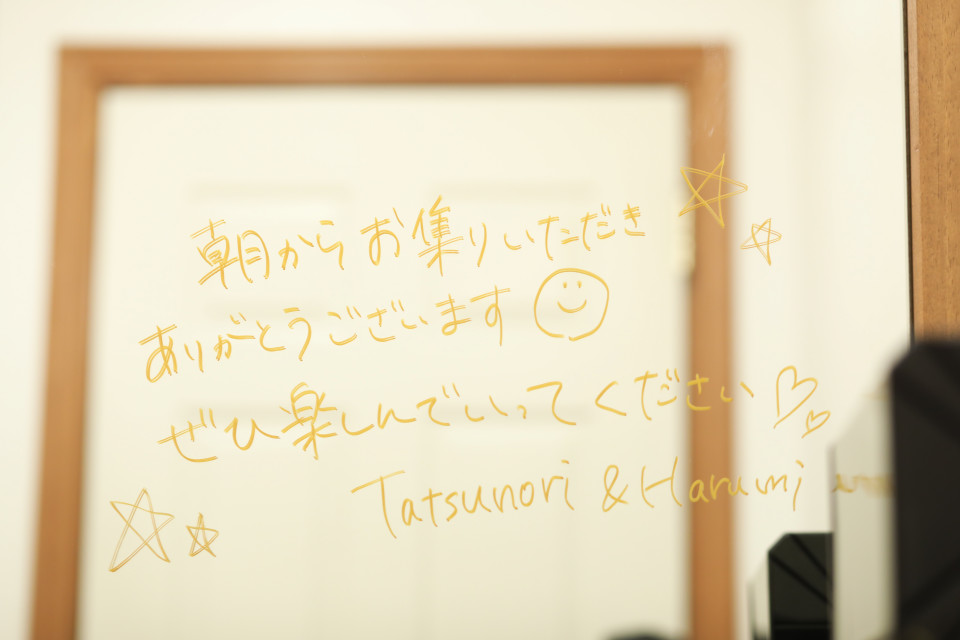 朝からお集りいただき
ありがとうございます
ぜひ楽しんでいってください
Tatsunori & Harumi